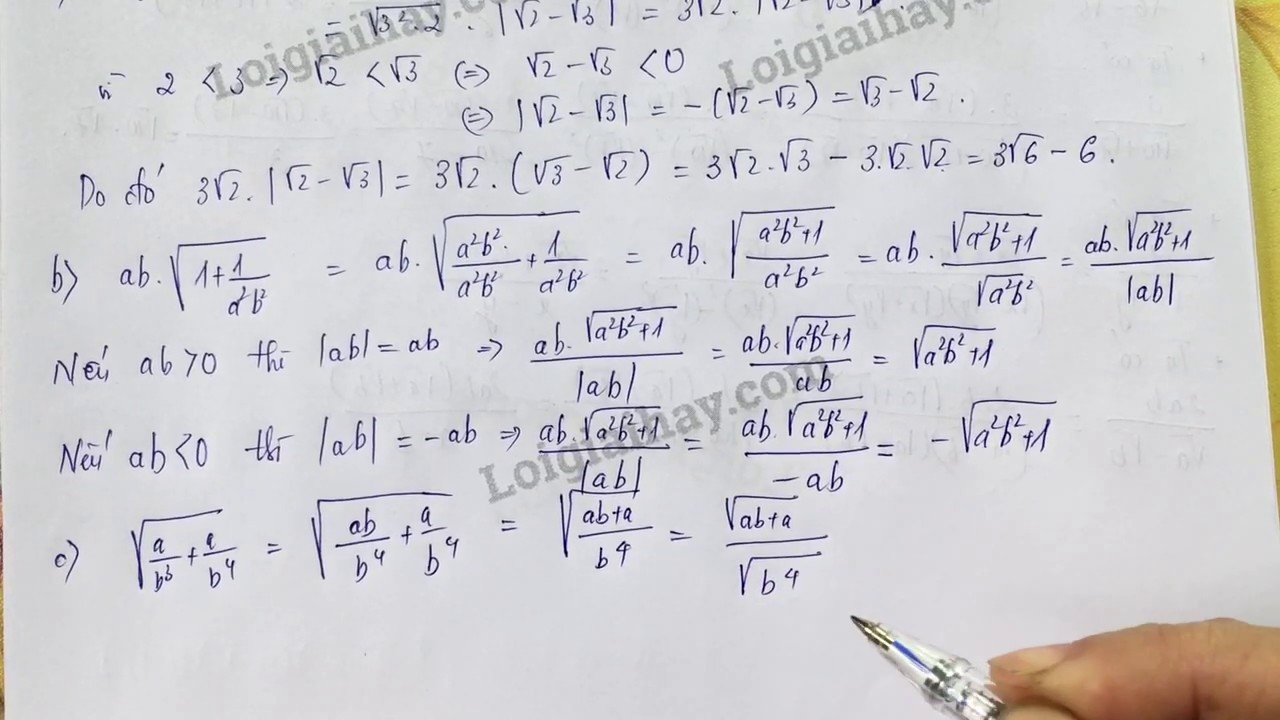 = √3².2 . |√2 - √3| = 3√2 . |√2 - √3| .
vì 2 < 3 => √2 < √3 (=) √2 - √3 < 0
(=) |√2 - √3| = - (√2 - √3) = √3 - √2 .
Do đó 3√2 . |√2 - √3| = 3√2 . (√3 - √2) = 3√2 . √3 - 3.√2.√2 = 3√6 - 6 .
b) ab . √(1 + 1/a²b²) = ab . √(a²b²/a²b² + 1/a²b²) = ab . √((a²b²+1)/a²b²) = ab . √(a²b²+1)/√(a²b²) = ab.√(a²b²+1)/|ab|
Nếu ab > 0 thì |ab| = ab => ab.√(a²b²+1)/|ab| = ab.√(a²b²+1)/ab = √(a²b²+1)
Nếu ab < 0 thì |ab| = -ab => ab.√(a²b²+1)/|ab| = ab.√(a²b²+1)/-ab = -√(a²b²+1)
c) √(a/b³ + a/b⁴) = √(ab/b⁴ + a/b⁴) = √((ab+a)/b⁴) = √(ab+a)/√(b⁴)
Loigiaihay.com
Loigiaihay.com
Loigiaihay.com